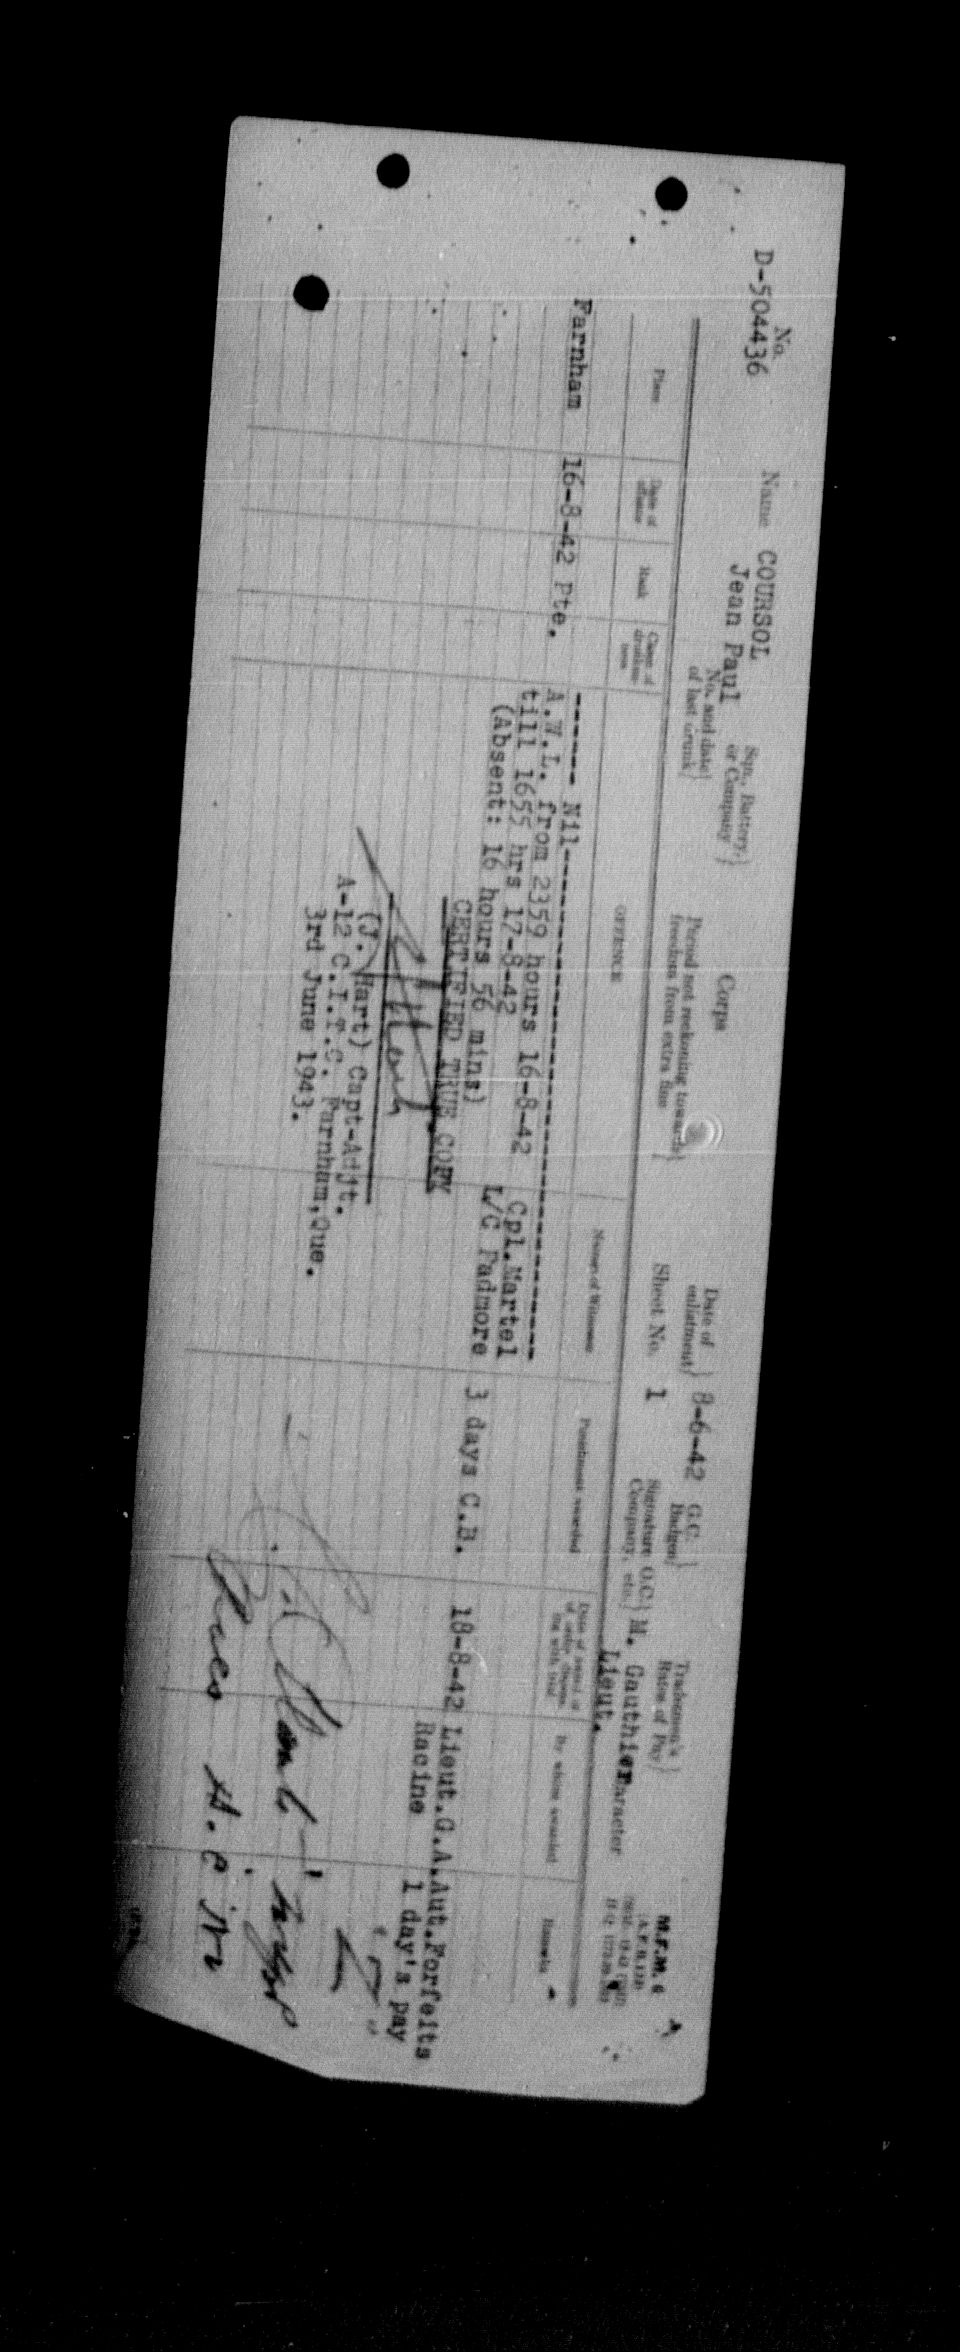 No. D-504436 Name COURSOL Jean Paul
Sqn., Battery, or Company
Corps
Date of enlistment 8-6-42
G.C. Badges
Tradesman's Rates of Pay
M.F.M. 6
No. and date of last drunk
Period not reckoning towards freedom from extra fine
Sheet No. 1
Signature O.C. Company, etc. M. Gauthier Lieut.
Character
Place
Date of offence
Rank
Cases of drunkenness
OFFENCE
Names of Witnesses
Punishment awarded
By whom awarded
Remarks
------ Nil-----------------------------
Farnham 16-8-42 Pte. A.W.L. from 2359 hours 16-8-42 Cpl.Martel 3 days C.B. 18-8-42 Lieut.G.A. Aut.Forfeits
till 1655 hrs 17-8-42 L/C Padmore Racine 1 day's pay
(Absent: 16 hours 56 mins)
CERTIFIED TRUE COPY
(J. Hart) Capt-Adjt.
A-12 C.I.T.C. Farnham,Que.
3rd June 1943.